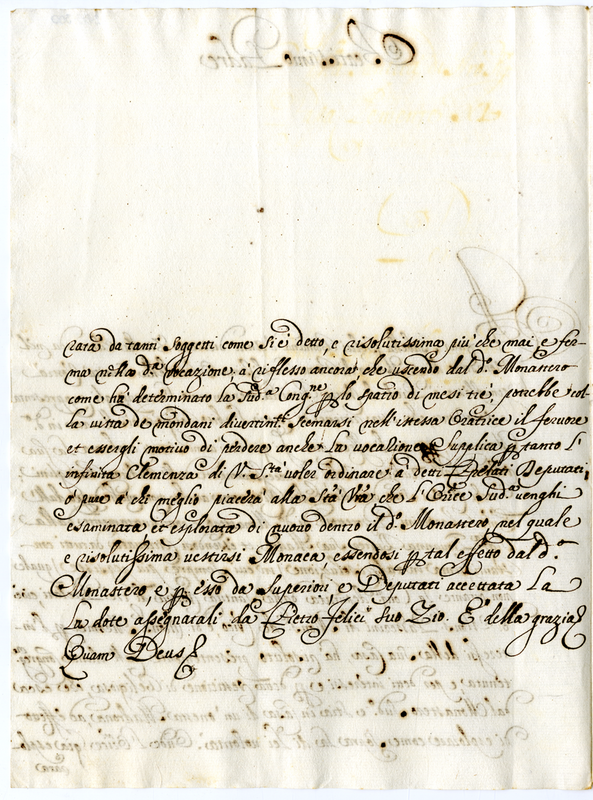 rata da tanti soggetti come si è detto, e risolutissima più che mai e fer-
ma nella d.ª vocazione. à riflesso ancora che uscendo dal d.º Monastero
come hà determinato la Sud.ª Cong.ne p lo spatio di mesi trè, potrebbe col
la vista de mondani divertim.ti scemarsi nell'istessa Oratrice il fervore
et essergli motivo di perdere anche la vocazione. Supplica p tanto l'
infinita Clemenza di V. S.tà voler ordinare à detti Prelati Deputati,
ò pure à chi meglio piacerà alla Stà Vrã che l'Orice Sud.ª venghi
esaminata et esplorata di nuovo dentro il d.º Monastero, nel quale
e risolutissima vestirsi Monaca, essendosi p tal effetto dal d.º
Monastero, e p esso da Superiori, e Deputati accettata la
la dote assegnatali da Pietro Felici suo Zio. E della grazia
Quam Deus